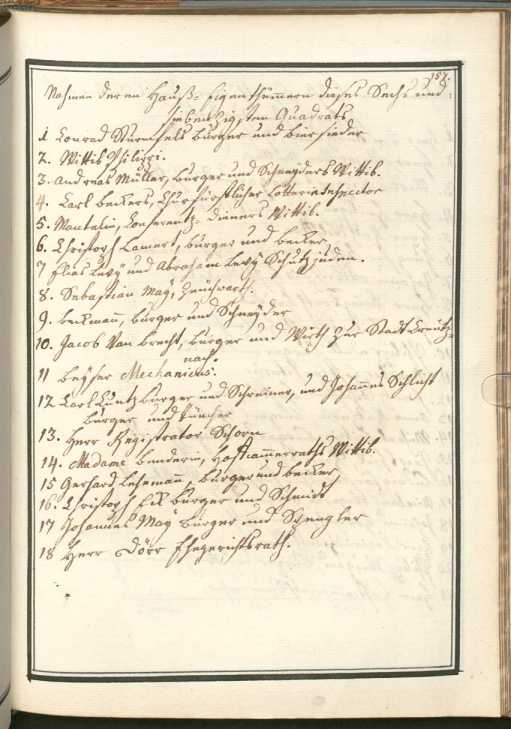 157.
Nahmen deren Hauß-Eigenthümmern dieses Sechs und
siebenzigsten Quadrats
1 Conrad Sturmfels burger und biersieder
2. Wittib Philippi.
3. Andreas Müller, burger und Schneyders Wittib.
4. Carl beckers, Churfürstlicher Lotterie Inspector
5. Mantelin, Conferentz-dieners Wittib.
6. Christoph Lamert, burger und becker
7 Elias Levÿ und Abraham Levÿ Schutzjuden.
8. Sebastian Maÿ,
9. beckmann, burger und Schneyder
10. Jacob Van brecht, burger und Wirth zur Stadt Creutz-
nach.
11 beyser Mechanicus.
12 Carl Cuntz burger und Schreiner, und Johannes Schlicht
burger und tüncher
13. Herr Registrator Schorn
14. Madame benderin, Hoffcammerraths Wittib.
15 Gerhard Lehemann, burger und becker
16. Christoph Eik burger und Schmidt
17 Johannes Maÿ burger und Spengler
18 Herr Dörr Ehegerichtsrath.